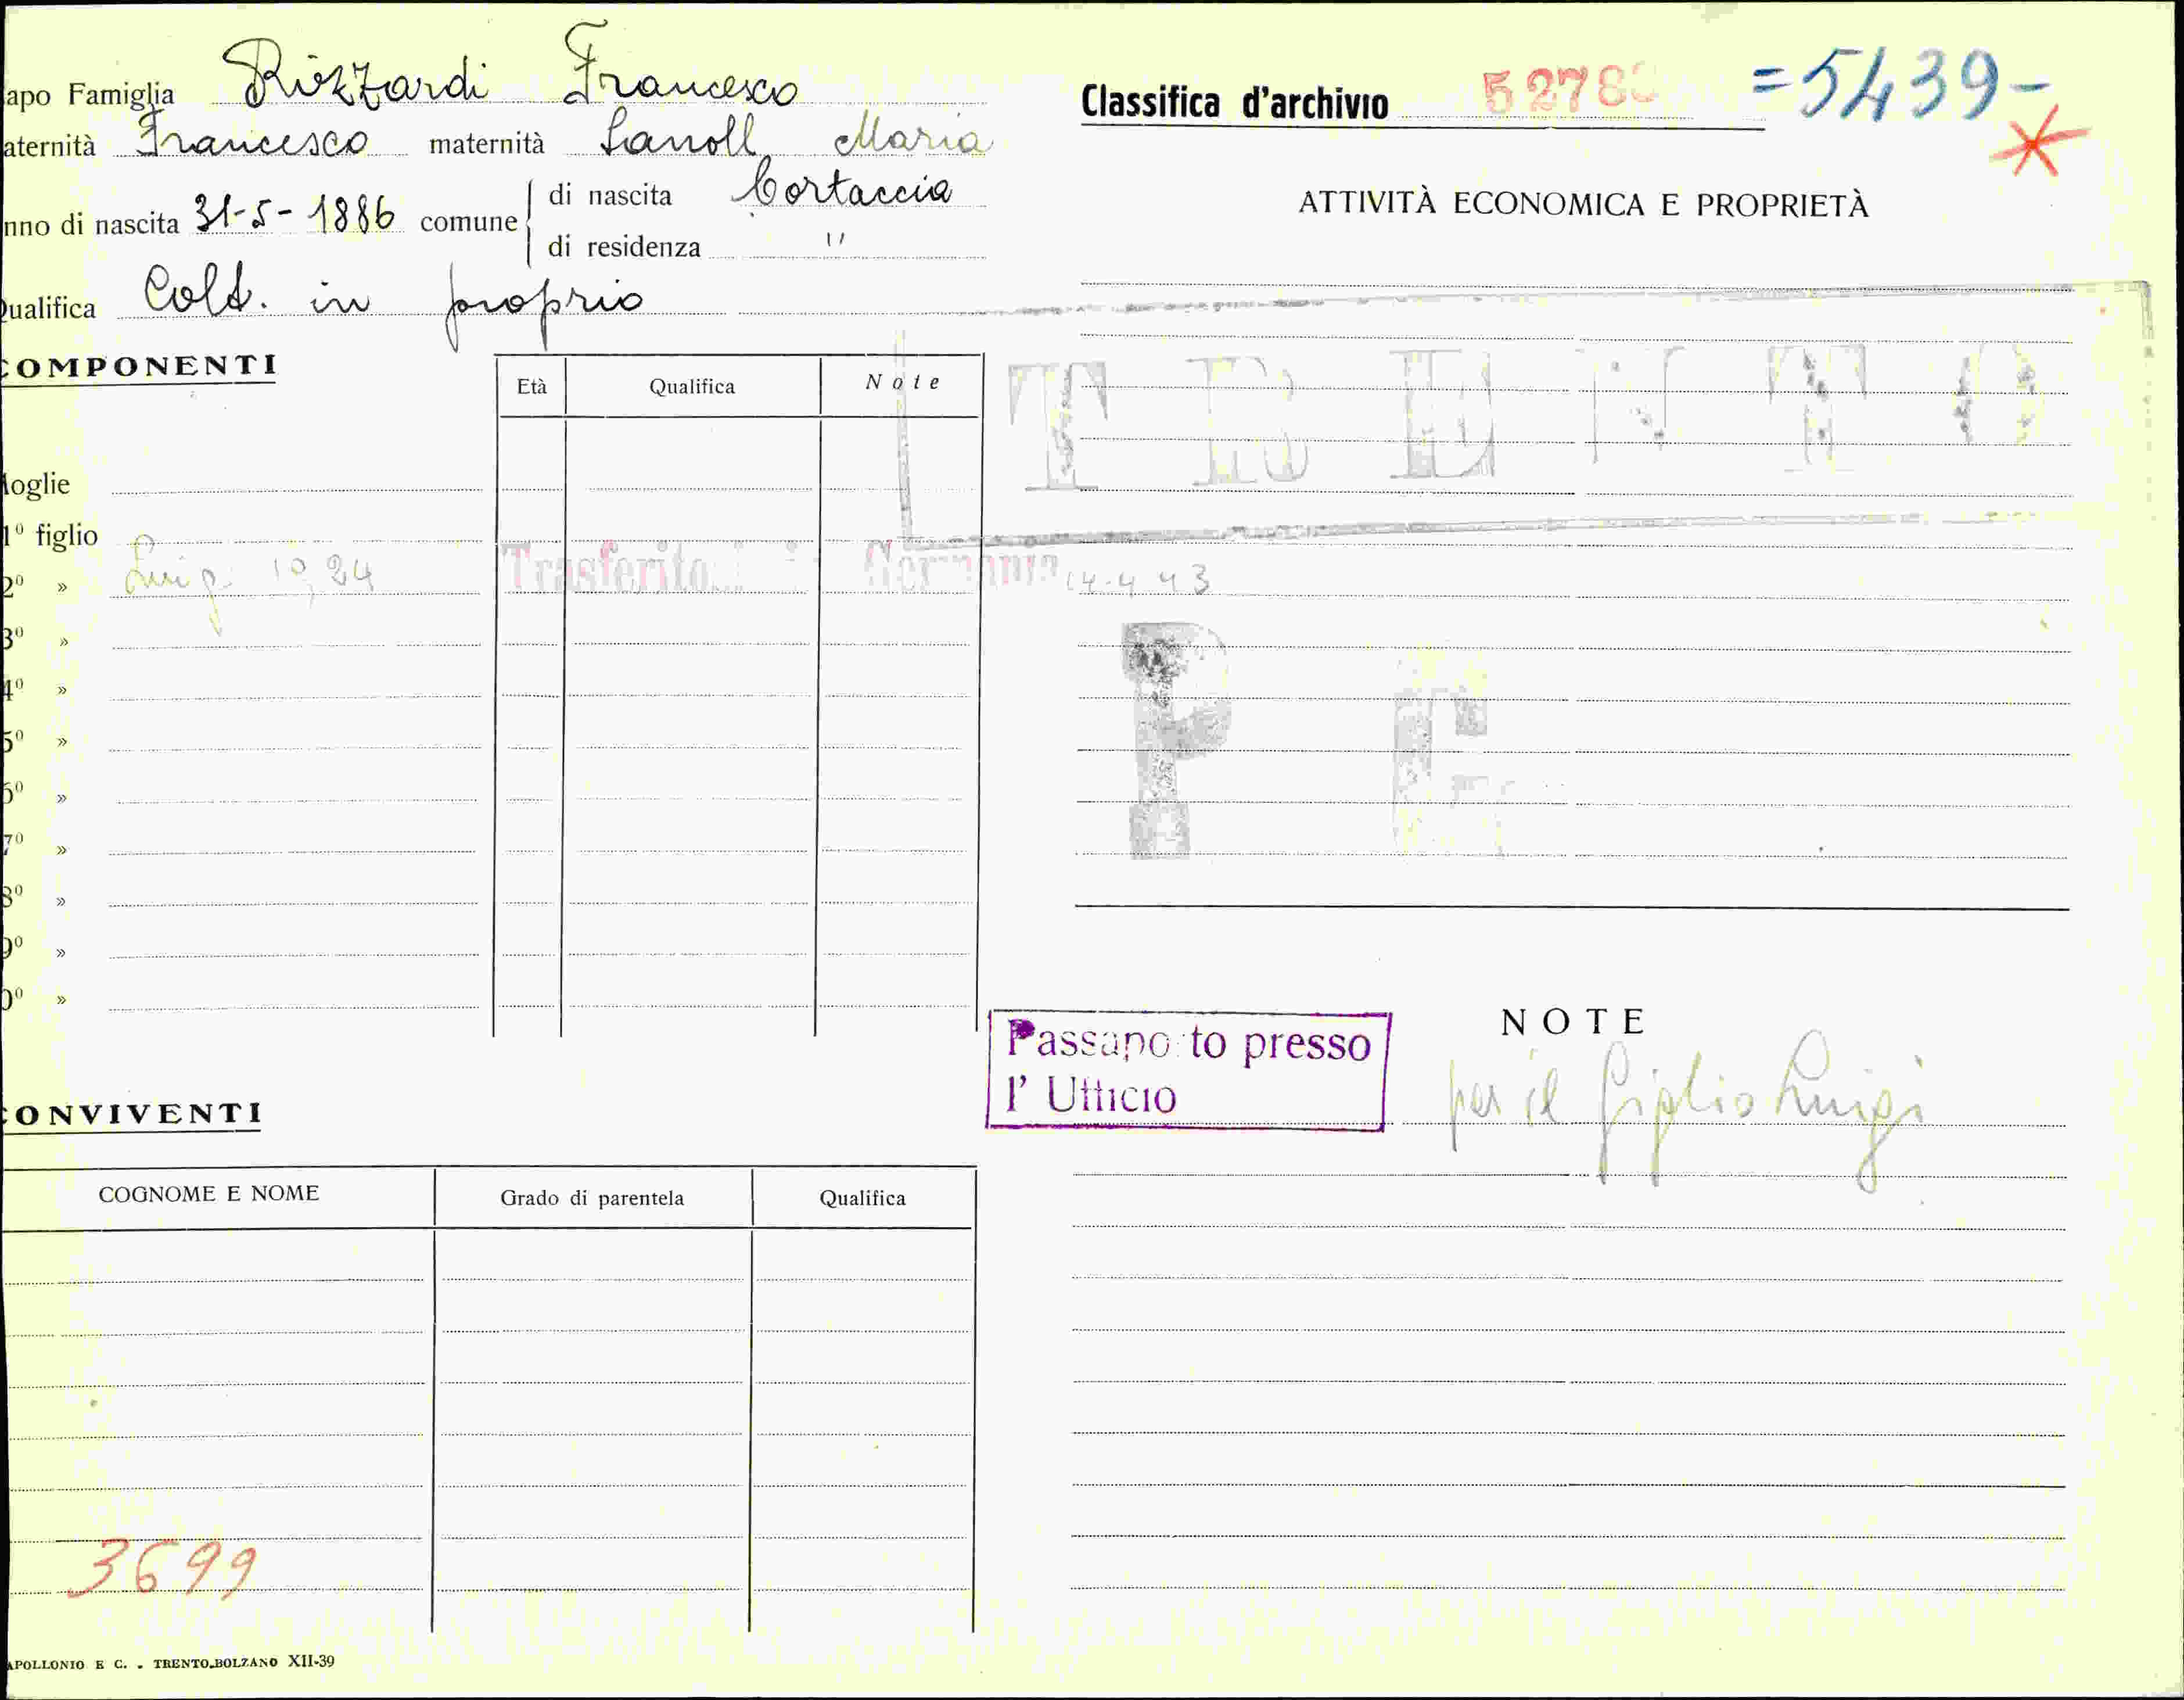 apo Famiglia Rizzardi Francesco
aternità Francesco maternità Sanoll Maria
nno di nascita 31-5-1886 comune di nascita Cortaccia
di residenza "
Qualifica Colt. in proprio
COMPONENTI
Età Qualifica Note
Moglie
1º figlio
2º » Luigi 1924 Trasferito Germania 14-4 43
3º »
4º »
5º »
6º »
7º »
8º »
9º »
0º »
CONVIVENTI
COGNOME E NOME Grado di parentela Qualifica
3699
APOLLONIO E C. - TRENTO-BOLZANO XII-39
Classifica d'archivio 5278 =5439-
ATTIVITÀ ECONOMICA E PROPRIETÀ
TRENTO
P E
NOTE
Passaporto presso
l' Ufficio
per il figlio Luigi